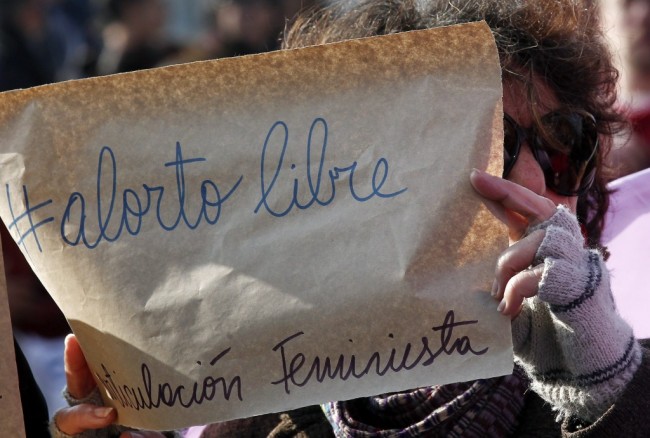 #aborto libre
Articulación Feminista